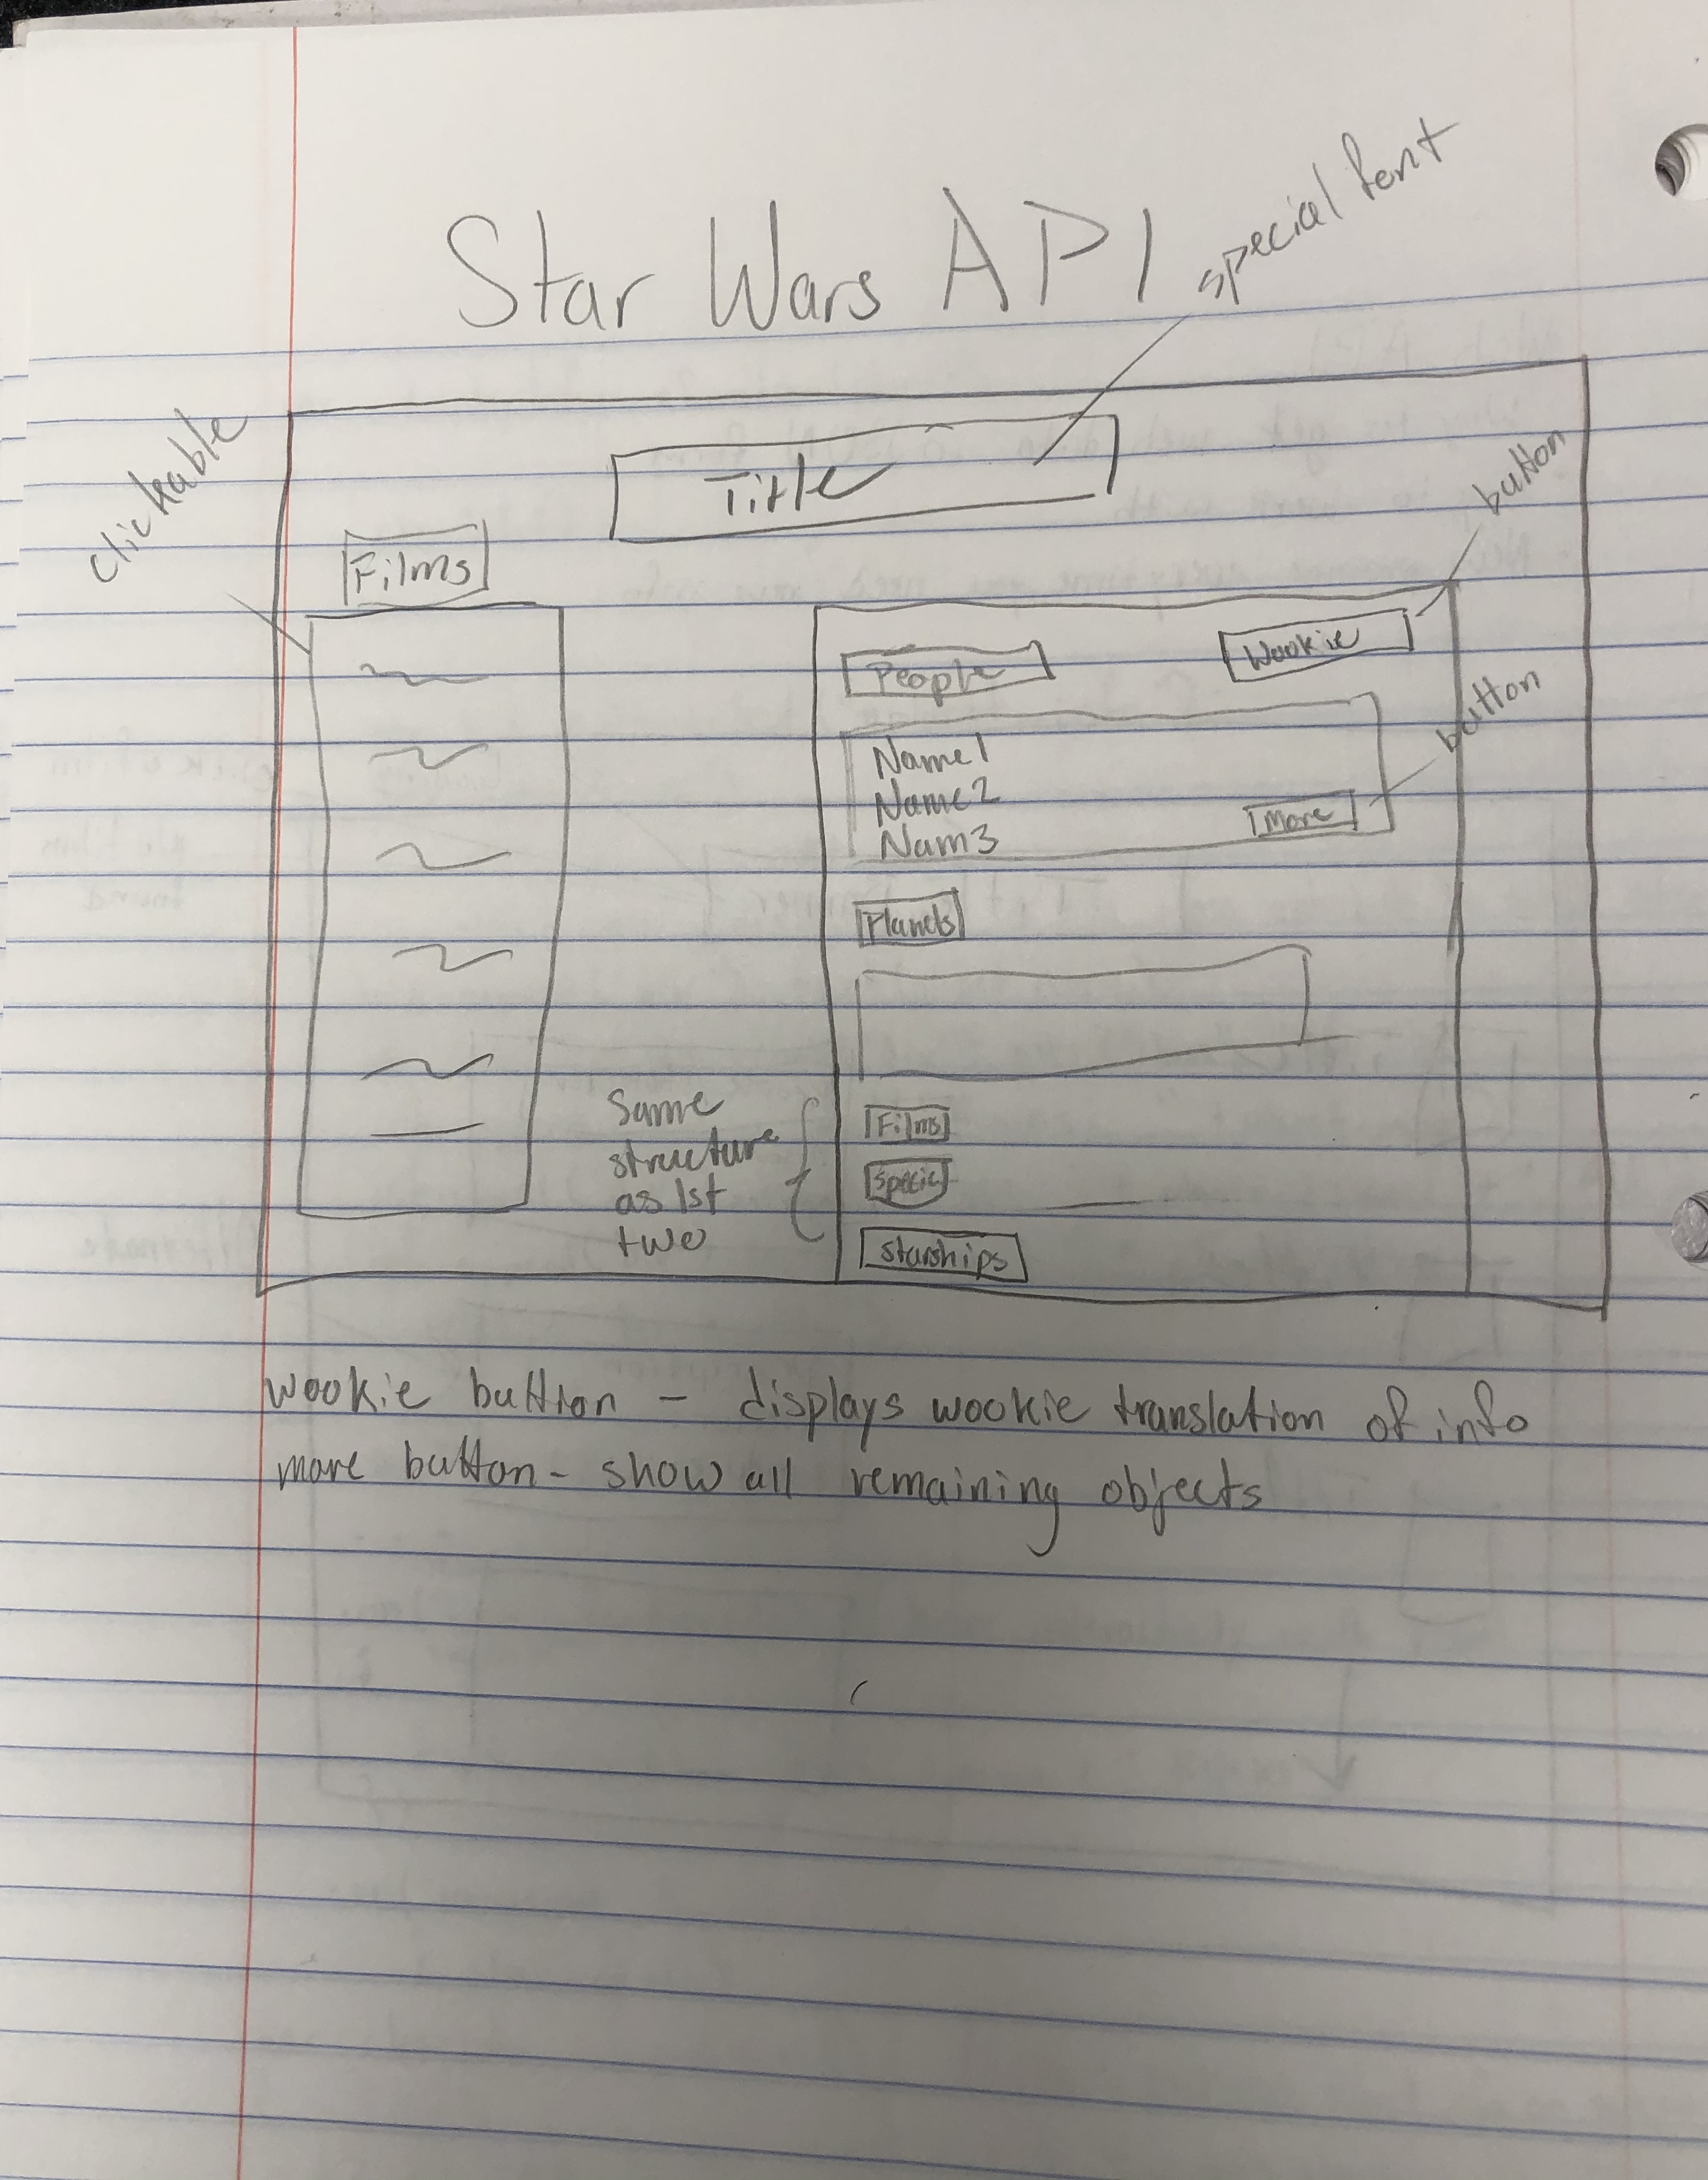 Star Wars API
special font
clickable
Title
button
Films
People
Wookie
button
Name1
Name2
Nam3
More
Planets
Same
structure
as 1st
two
Films
Specie
Starships
wookie button - displays wookie translation of info
more button - show all remaining objects